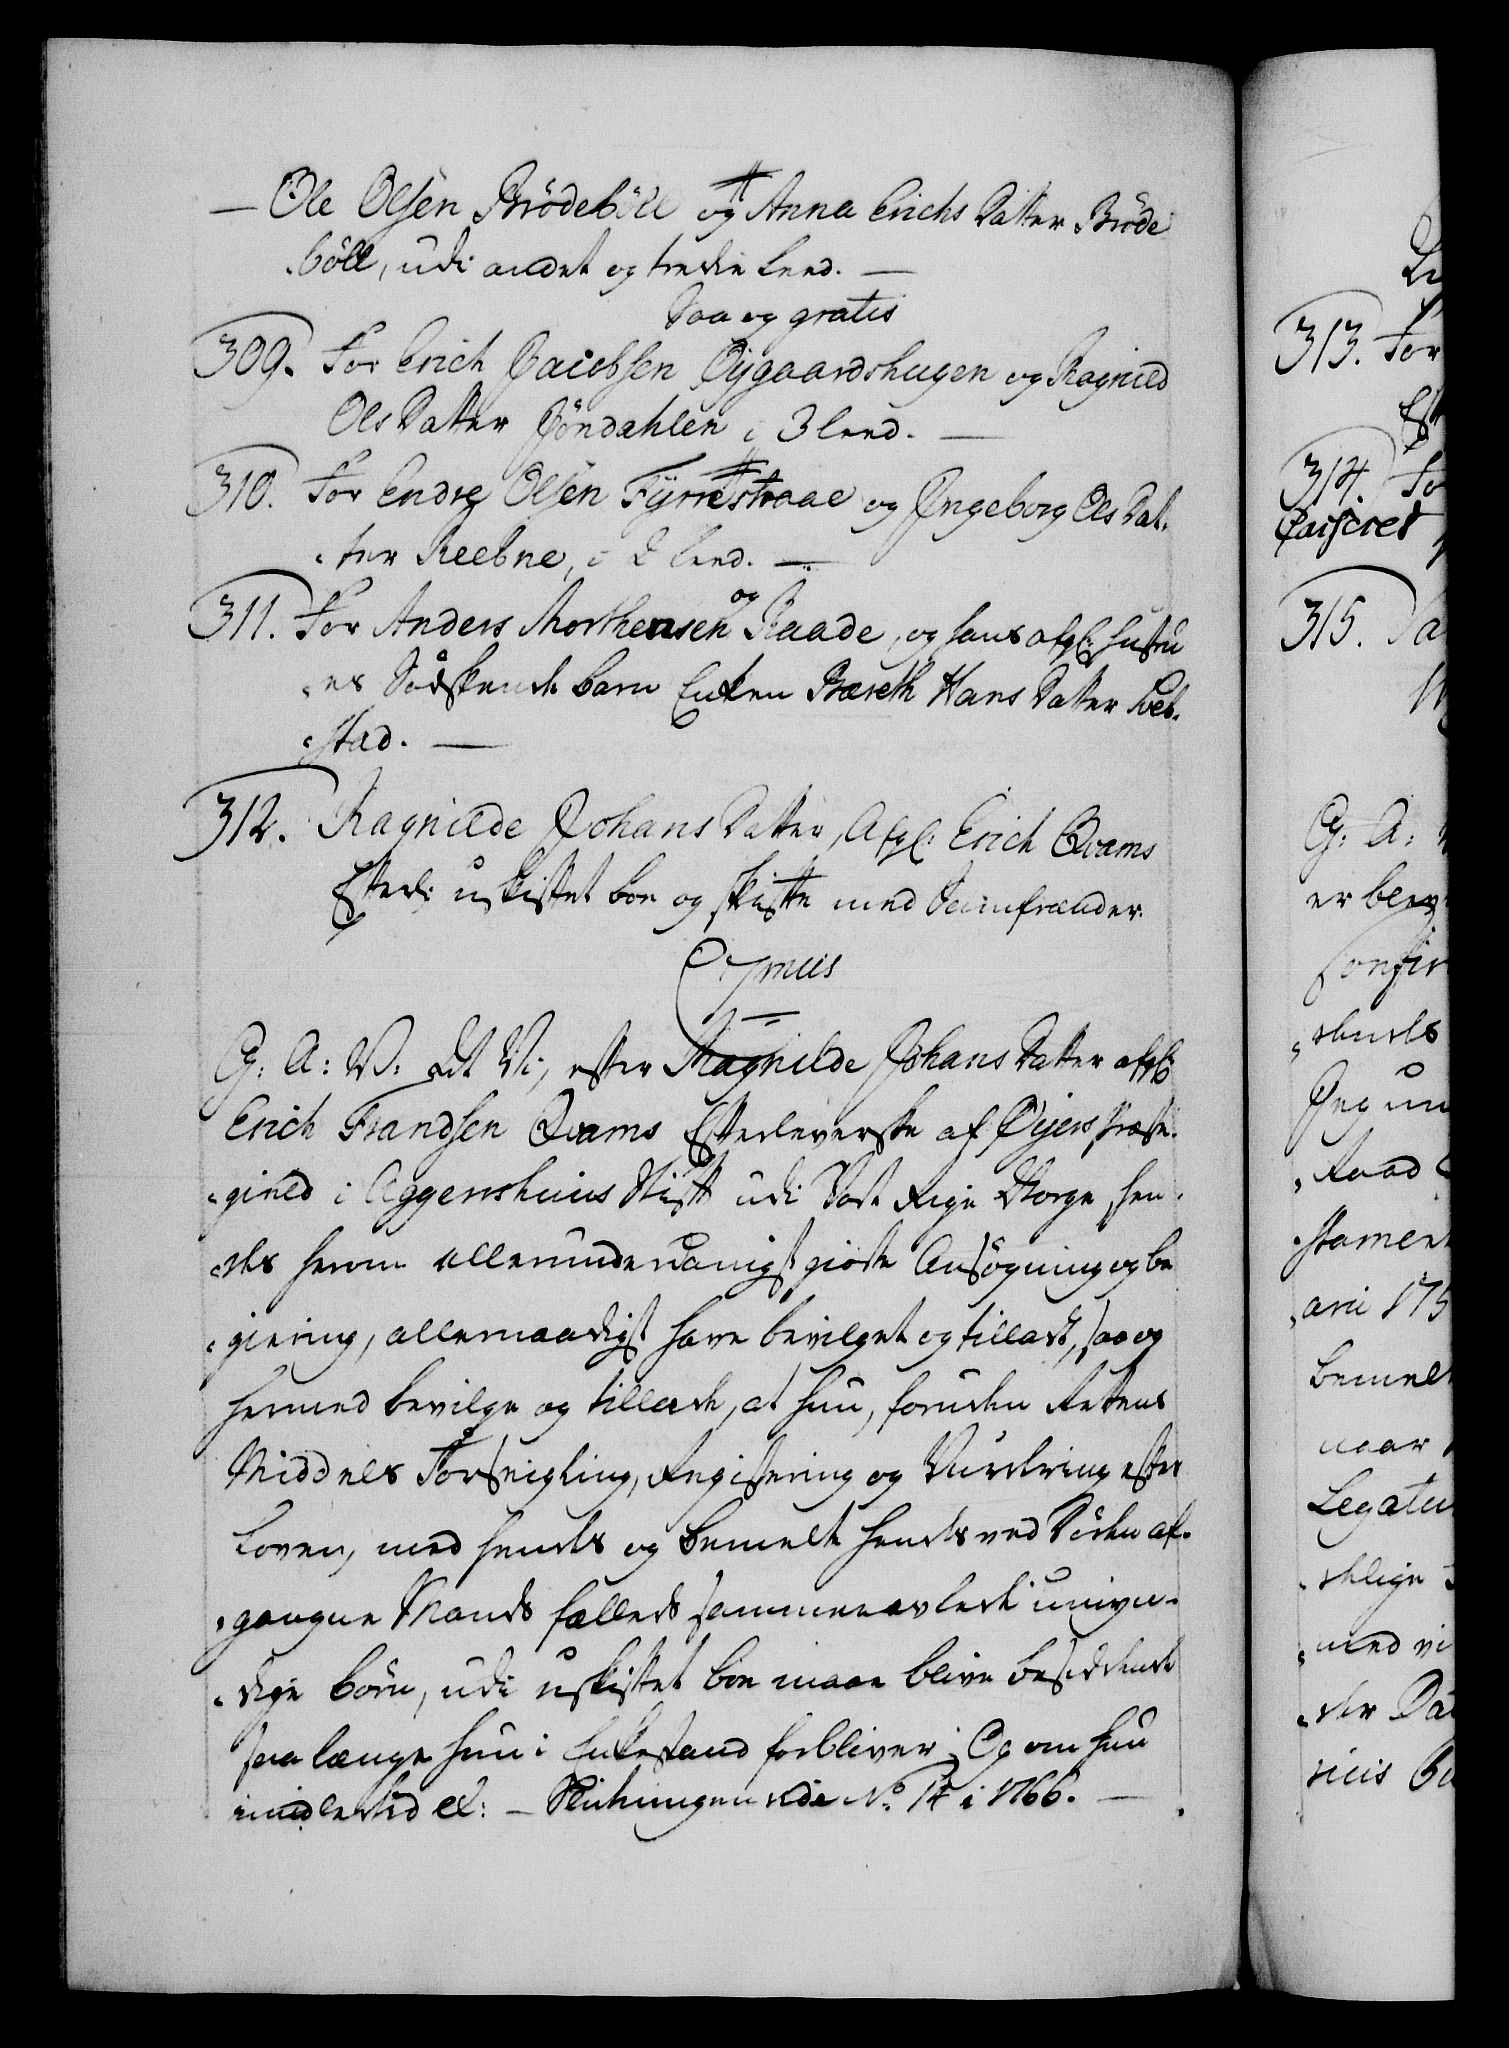 — Ole Olsen Brödeböll og Anna Erichs Datter Bröde
böll, udi andet og tredie Leed. —
Saa og gratis
309. For Erich Jacobsen Øygaardshugen og Ragnild
Ols Datter Jöndahlen i 3 Leed. —
310. For Endre Olsen Fyrrestraae og Ingeborg Ols Dat-
ter Reebne, i 2 Leed. —
311. For Anders Morthensen og Raade, og hans afgl: Hustru
es Södskende barn Enken Bereth Hans Datter
stad. —
312. Ragnilde Johans Datter, Afgl: Erich Qvams
Efterl: uskiftet boe og skifte med Samfrænder.
G: A: V: At Vi, efter Ragnilde Johans Datter afgl:
Erich Frandsen Qvams Efterleverske af Øyers Præste-
gield i Aggershuus Stift udi Vort Rige Norge, hen-
des herom allerunderdanigst giorte Ansögning og be
giering, allernaadigst have bevilget og tilladt, saa og
hermed bevilge og tillade, at hun, foruden Rettens
Middels Forseigling, Registering og Vurdering efter
Loven, med hendes og bemelte hendes ved Döden af-
gangne Mands fælleds sammenavlede umyn-
dige börn, udi uskiftet boe maae blive besiddende
saa længe hun i Enkestand forbliver; Og om hun
imidlertid el: — Slutningen vide No. 14 i 1766. —
313. For
314. Fo
Casseret
315.
G: A:
er bev
Confir
dendes
Jeg un
Raad
stament
arii 175
bemel
naar
Legatu
delige
med vi
der Da